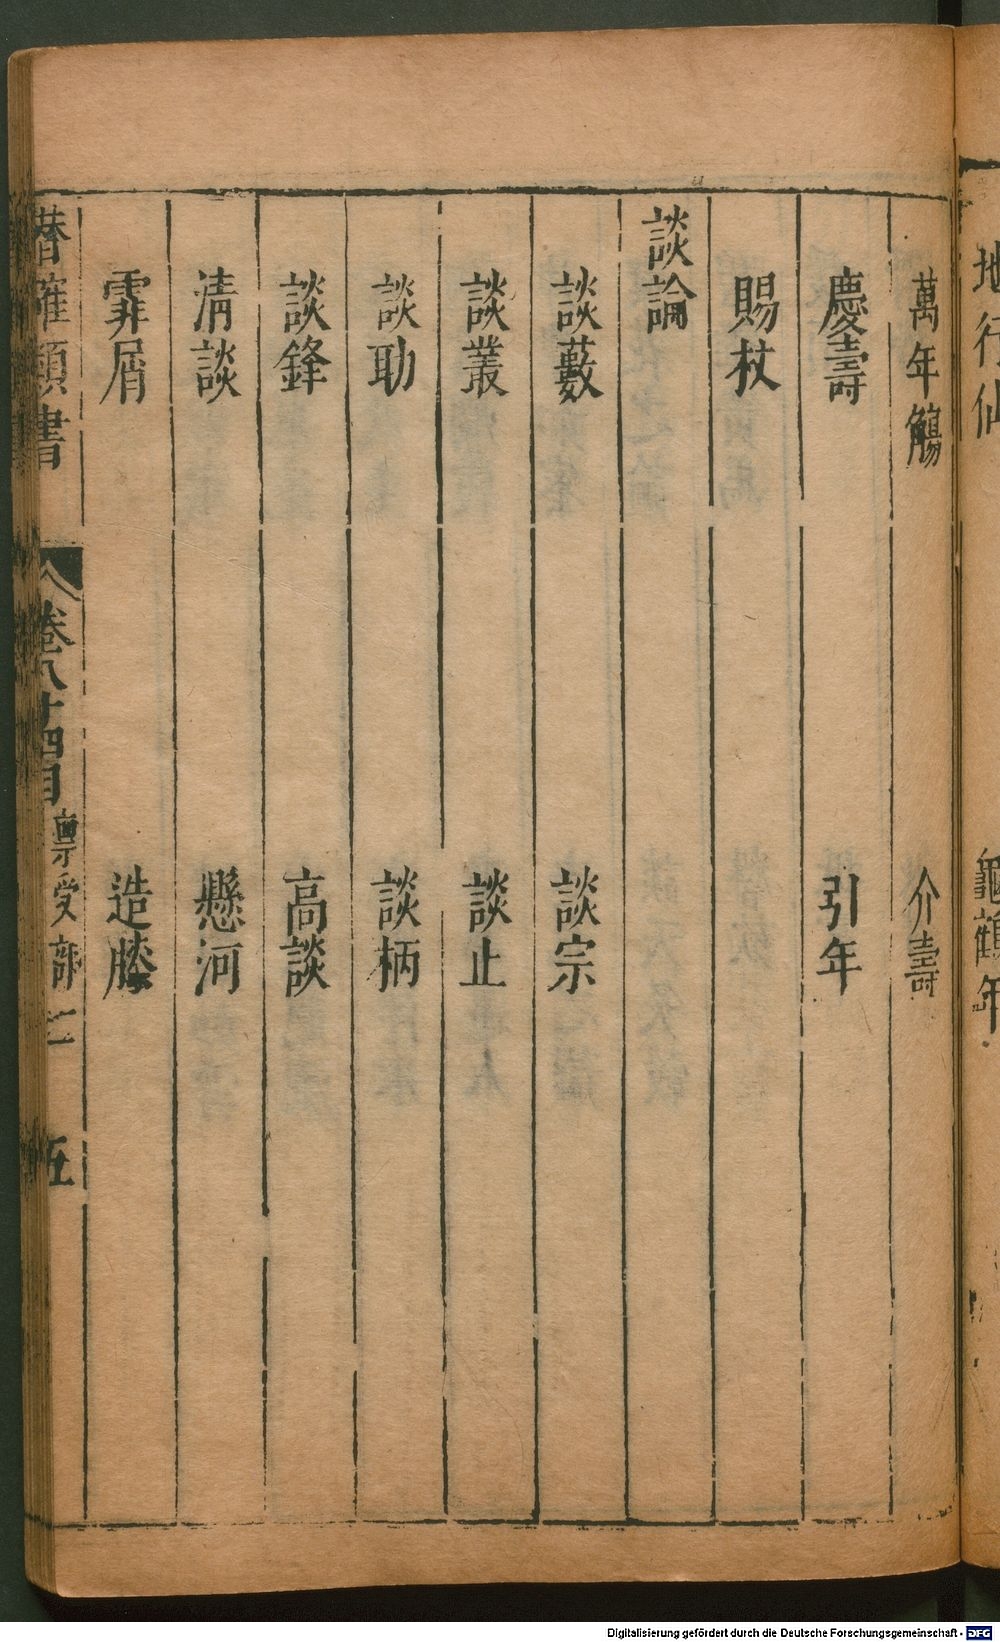 地行仙 龜鶴年
萬年觴 介壽
慶壽 引年
賜杖
談論
談藪 談宗
談叢 談止
談助 談柄
談鋒 高談
清談 懸河
霏屑 造膝
潛確類書 卷八十四目 稟受部 五
Digitalisierung gefördert durch die Deutsche Forschungsgemeinschaft - DFG